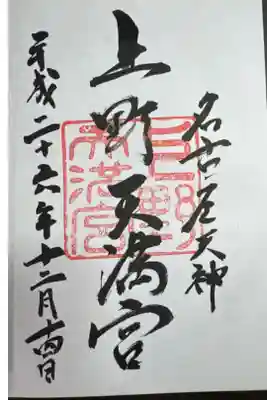 名古屋天神
上野天満宮
上野天満宮
平成二十六年十二月十四日